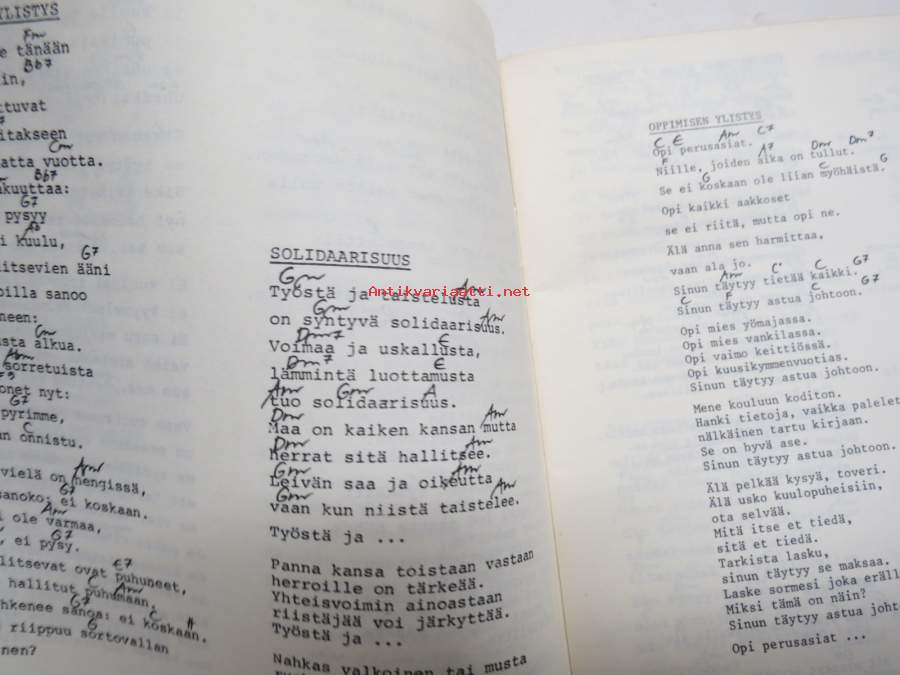 YLISTYS
Fm
e tänään
Bb7
in,
ttuvat
7
itakseen
Cm
atta vuotta.
Bb7
kuuttaa:
G7
pysyy
Ab
i kuulu,
G7
litsevien ääni
oilla sanoo
neen:
Cm
sta alkua.
sorretuista
onet nyt:
G7
pyrimme,
C
an onnistu.
Am
vielä on hengissä,
G7
sanoko: ei koskaan.
Am
i ole varmaa,
G7
, ei pysy.
E7
litsevat ovat puhuneet,
C Am
hallitut puhumaan.
G7 C
hkenee sanoa: ei koskaan.
G
riippuu sortovallan
nen?
SOLIDAARISUUS
Gm Am
Työstä ja taistelusta
Gm Am
on syntyvä solidaarisuus.
Dm7 E
Voimaa ja uskallusta,
Dm7 E
lämmintä luottamusta
Am Gm A
tuo solidaarisuus.
Dm Am
Maa on kaiken kansan mutta
Dm Am
herrat sitä hallitsee.
Gm Am
Leivän saa ja oikeutta
Gm Am
vaan kun niistä taistelee.
Työstä ja ...
Panna kansa toistaan vastaan
herroille on tärkeää.
Yhteisvoimin ainoastaan
riistäjää voi järkyttää.
Työstä ja ...
Nahkas valkoinen tai musta
OPPIMISEN YLISTYS
C E Am C7
Opi perusasiat.
F A7 Dm Dm7
Niille, joiden aika on tullut.
G C G
Se ei koskaan ole liian myöhäistä.
Opi kaikki aakkoset
se ei riitä, mutta opi ne.
Älä anna sen harmittaa,
vaan ala jo.
Am C C G7
Sinun täytyy tietää kaikki.
C F C G7
Sinun täytyy astua johtoon.
Opi mies yömajassa.
Opi mies vankilassa.
Opi vaimo keittiössä.
Opi kuusikymmenvuotias.
Sinun täytyy astua johtoon.
Mene kouluun koditon.
Hanki tietoja, vaikka palelet
nälkäinen tartu kirjaan.
Se on hyvä ase.
Sinun täytyy astua johtoon.
Älä pelkää kysyä, toveri.
Älä usko kuulopuheisiin,
ota selvää.
Mitä itse et tiedä,
sitä et tiedä.
Tarkista lasku,
sinun täytyy se maksaa.
Laske sormesi joka eräll
Miksi tämä on näin?
Sinun täytyy astua johto
Opi perusasiat ...
Antikvariaatti.net